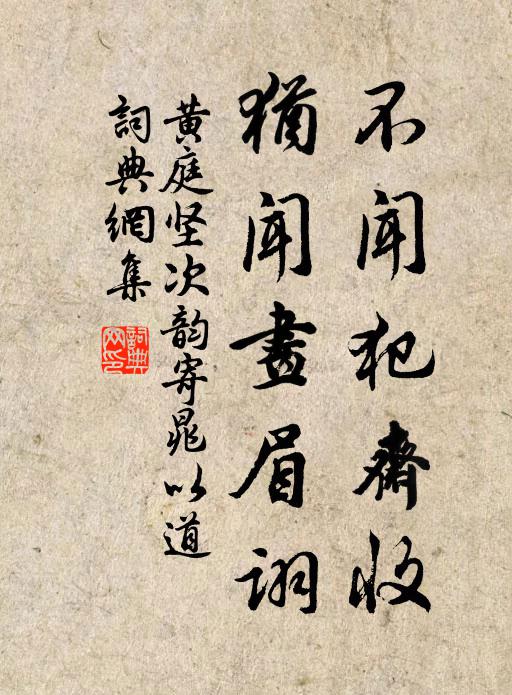 不闻犯齋收
猶闻畫眉诩
黄庭坚次韵寄晁以道
詞典網集
詞典网印